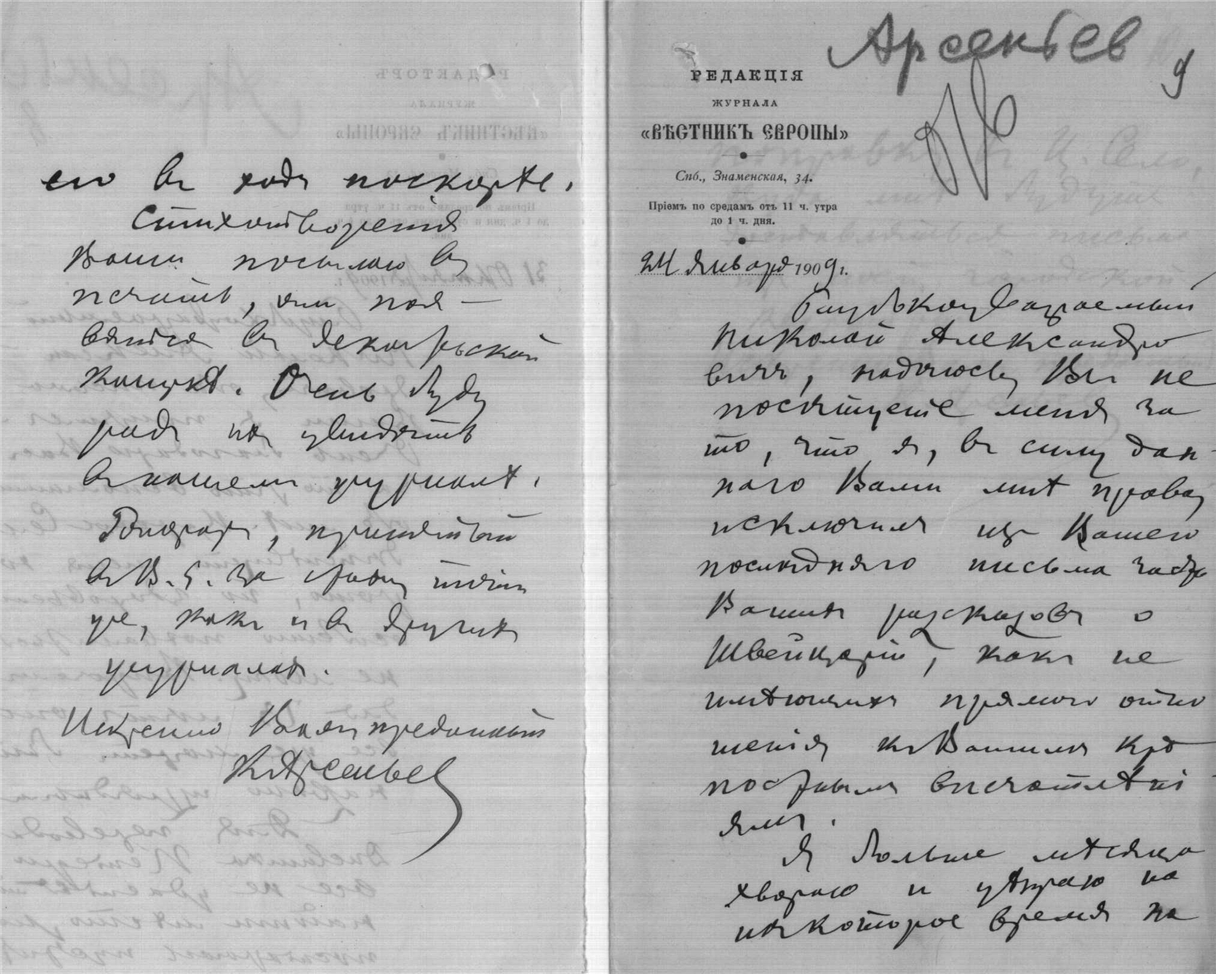 его въ ходъ поскорѣе.
Стихотворенія
Ваши посылаю въ
печать, они поя-
вятся въ декабрьской
книжкѣ. Очень буду
радъ ихъ увидѣть
въ нашемъ журналѣ.
Гонораръ, принятый
въ В. Е. за
же, какъ и въ другихъ
журналахъ.
Искренно Вамъ преданный
К. Арсеньевъ
Арсеньев
9
РЕДАКЦІЯ
ЖУРНАЛА
«ВѢСТНИКЪ ЕВРОПЫ»
Спб., Знаменская, 34.
Пріемъ по средамъ отъ 11 ч. утра
до 1 ч. дня.
24 января 1909 г.
Глубокоуважаемый
Николай Александро
вичъ, надѣюсь, Вы не
посѣтуете меня за
то, что я, въ силу дан-
наго Вами мнѣ права,
исключилъ изъ Вашего
послѣдняго письма
Вашихъ разсказовъ о
Швейцаріи, какъ не
имѣющихъ прямого отно
шенія къ Вашимъ крѣ
постнымъ впечатлѣні
ямъ.
Я больше мѣсяца
хвораю и уѣзжаю на
нѣкоторое время на